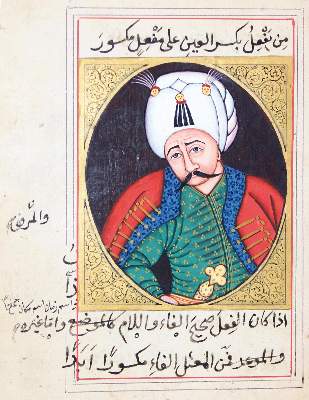 من يَفْعِلُ بكسر العين على مَفْعِلٍ مكسور
اذا كان الفعل صحيح الفاء واللام كالموضع واما غيره
والموعد فمن المعتل الفاء مكسورًا ابدًا